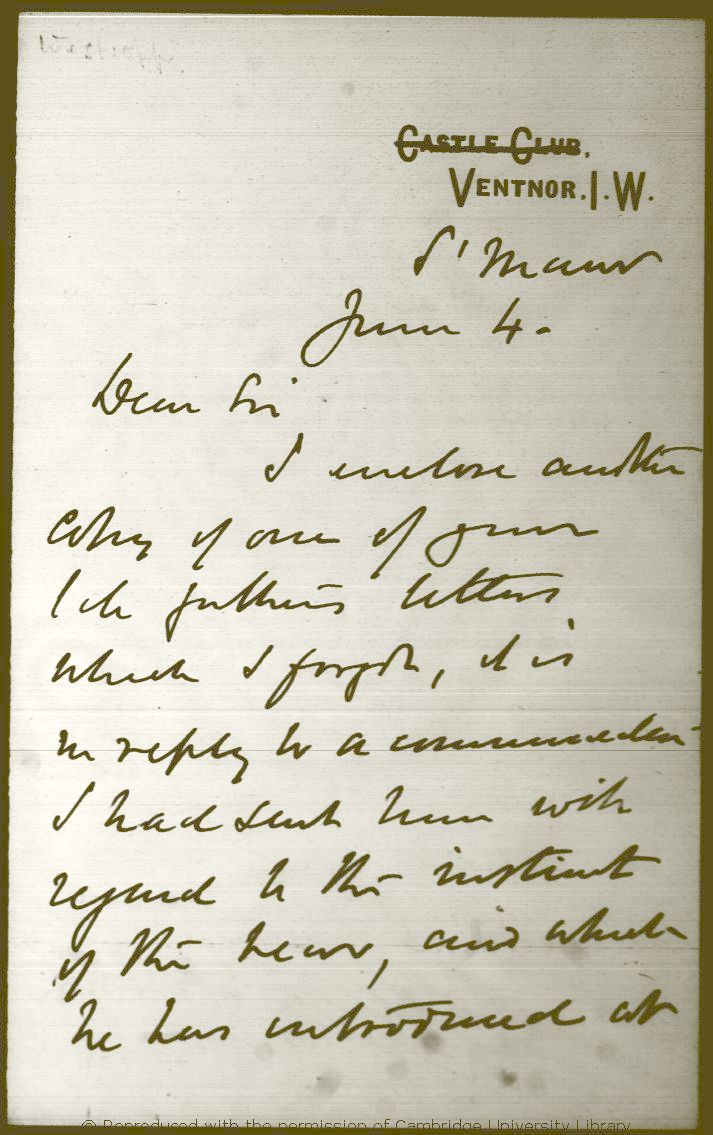 CASTLE CLUB,
VENTNOR. I. W.
St Maur
June 4.
Dear Sir
I enclose another
copy of one of your
late father's letters
which I forgot, it is
in reply to a communication
I had sent him with
regard to the instinct
of the bear, and which
he has introduced at
© Reproduced with the permission of Cambridge University Library